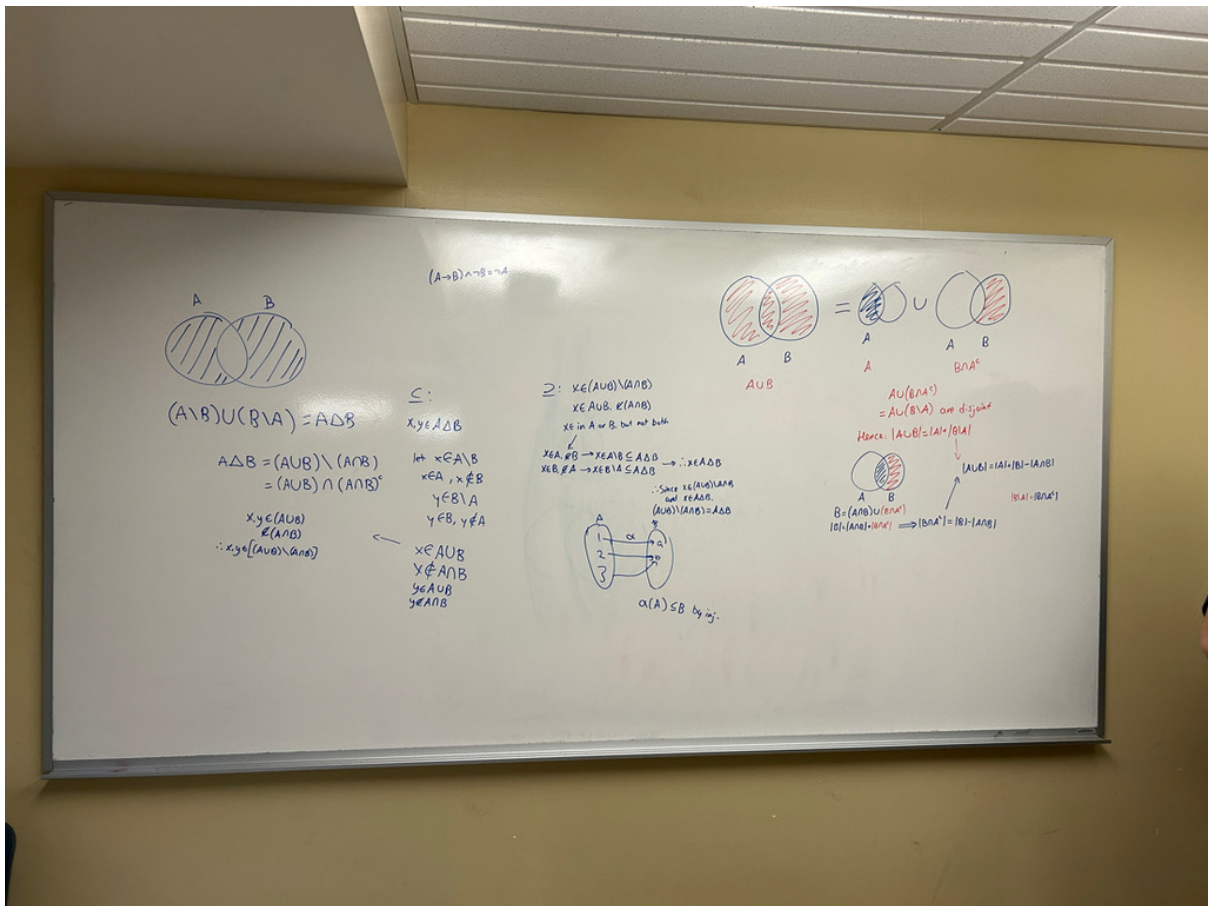 (A→B)∧¬B=¬A
A B
(A\B)∪(B\A)=A∆B
A∆B=(A∪B)\(A∩B)
=(A∪B)∩(A∩B)ᶜ
x,y∈(A∪B)
∉(A∩B)
∴x,y∈[(A∪B)\(A∩B)]
⊆:
x,y∈A∆B
let x∈A\B
x∈A, x∉B
y∈B\A
y∈B, y∉A
x∈A∪B
x∉A∩B
y∈A∪B
y∉A∩B
⊇: x∈(A∪B)\(A∩B)
x∈A∪B, ∉(A∩B)
x∈ in A or B, but not both
x∈A, ∉B→x∈A\B⊆A∆B
x∈B, ∉A→x∈B\A⊆A∆B
→∴x∈A∆B
∴Since x∈(A∪B)\(A∩B)
and x∈A∆B,
(A∪B)\(A∩B)=A∆B
A
1 α a
2
3
α(A)⊆B by inj.
= ∪
A B
A∪B
A
A
A B
B∩Aᶜ
A∪(B∩Aᶜ)
=A∪(B\A) are disjoint
Hence: |A∪B|=|A|+|B\A|
|A∪B|=|A|+|B|-|A∩B|
A B
|B\A|=|B∩Aᶜ|
B=(A∩B)∪(B∩Aᶜ)
|B|=|A∩B|+|B∩Aᶜ| ⟹|B∩Aᶜ|=|B|-|A∩B|